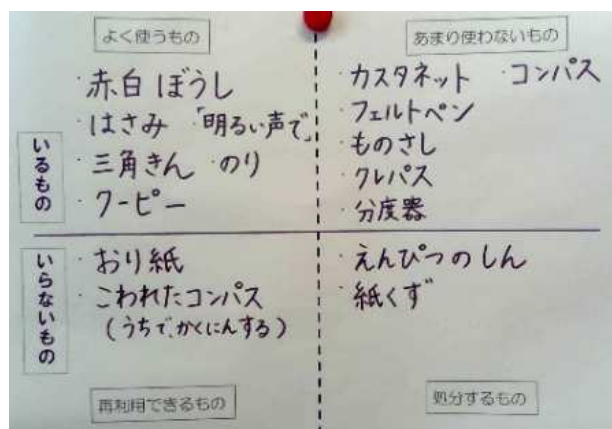 よく使うもの
あまり使わないもの
いるもの
・赤白ぼうし
・はさみ ・「明るい声で」
・三角きん ・のり
・クーピー
・カスタネット ・コンパス
・フェルトペン
・ものさし
・クレパス
・分度器
いらないもの
・おり紙
・こわれたコンパス
(うちで、かくにんする)
・えんぴつのしん
・紙くず
再利用できるもの
処分するもの